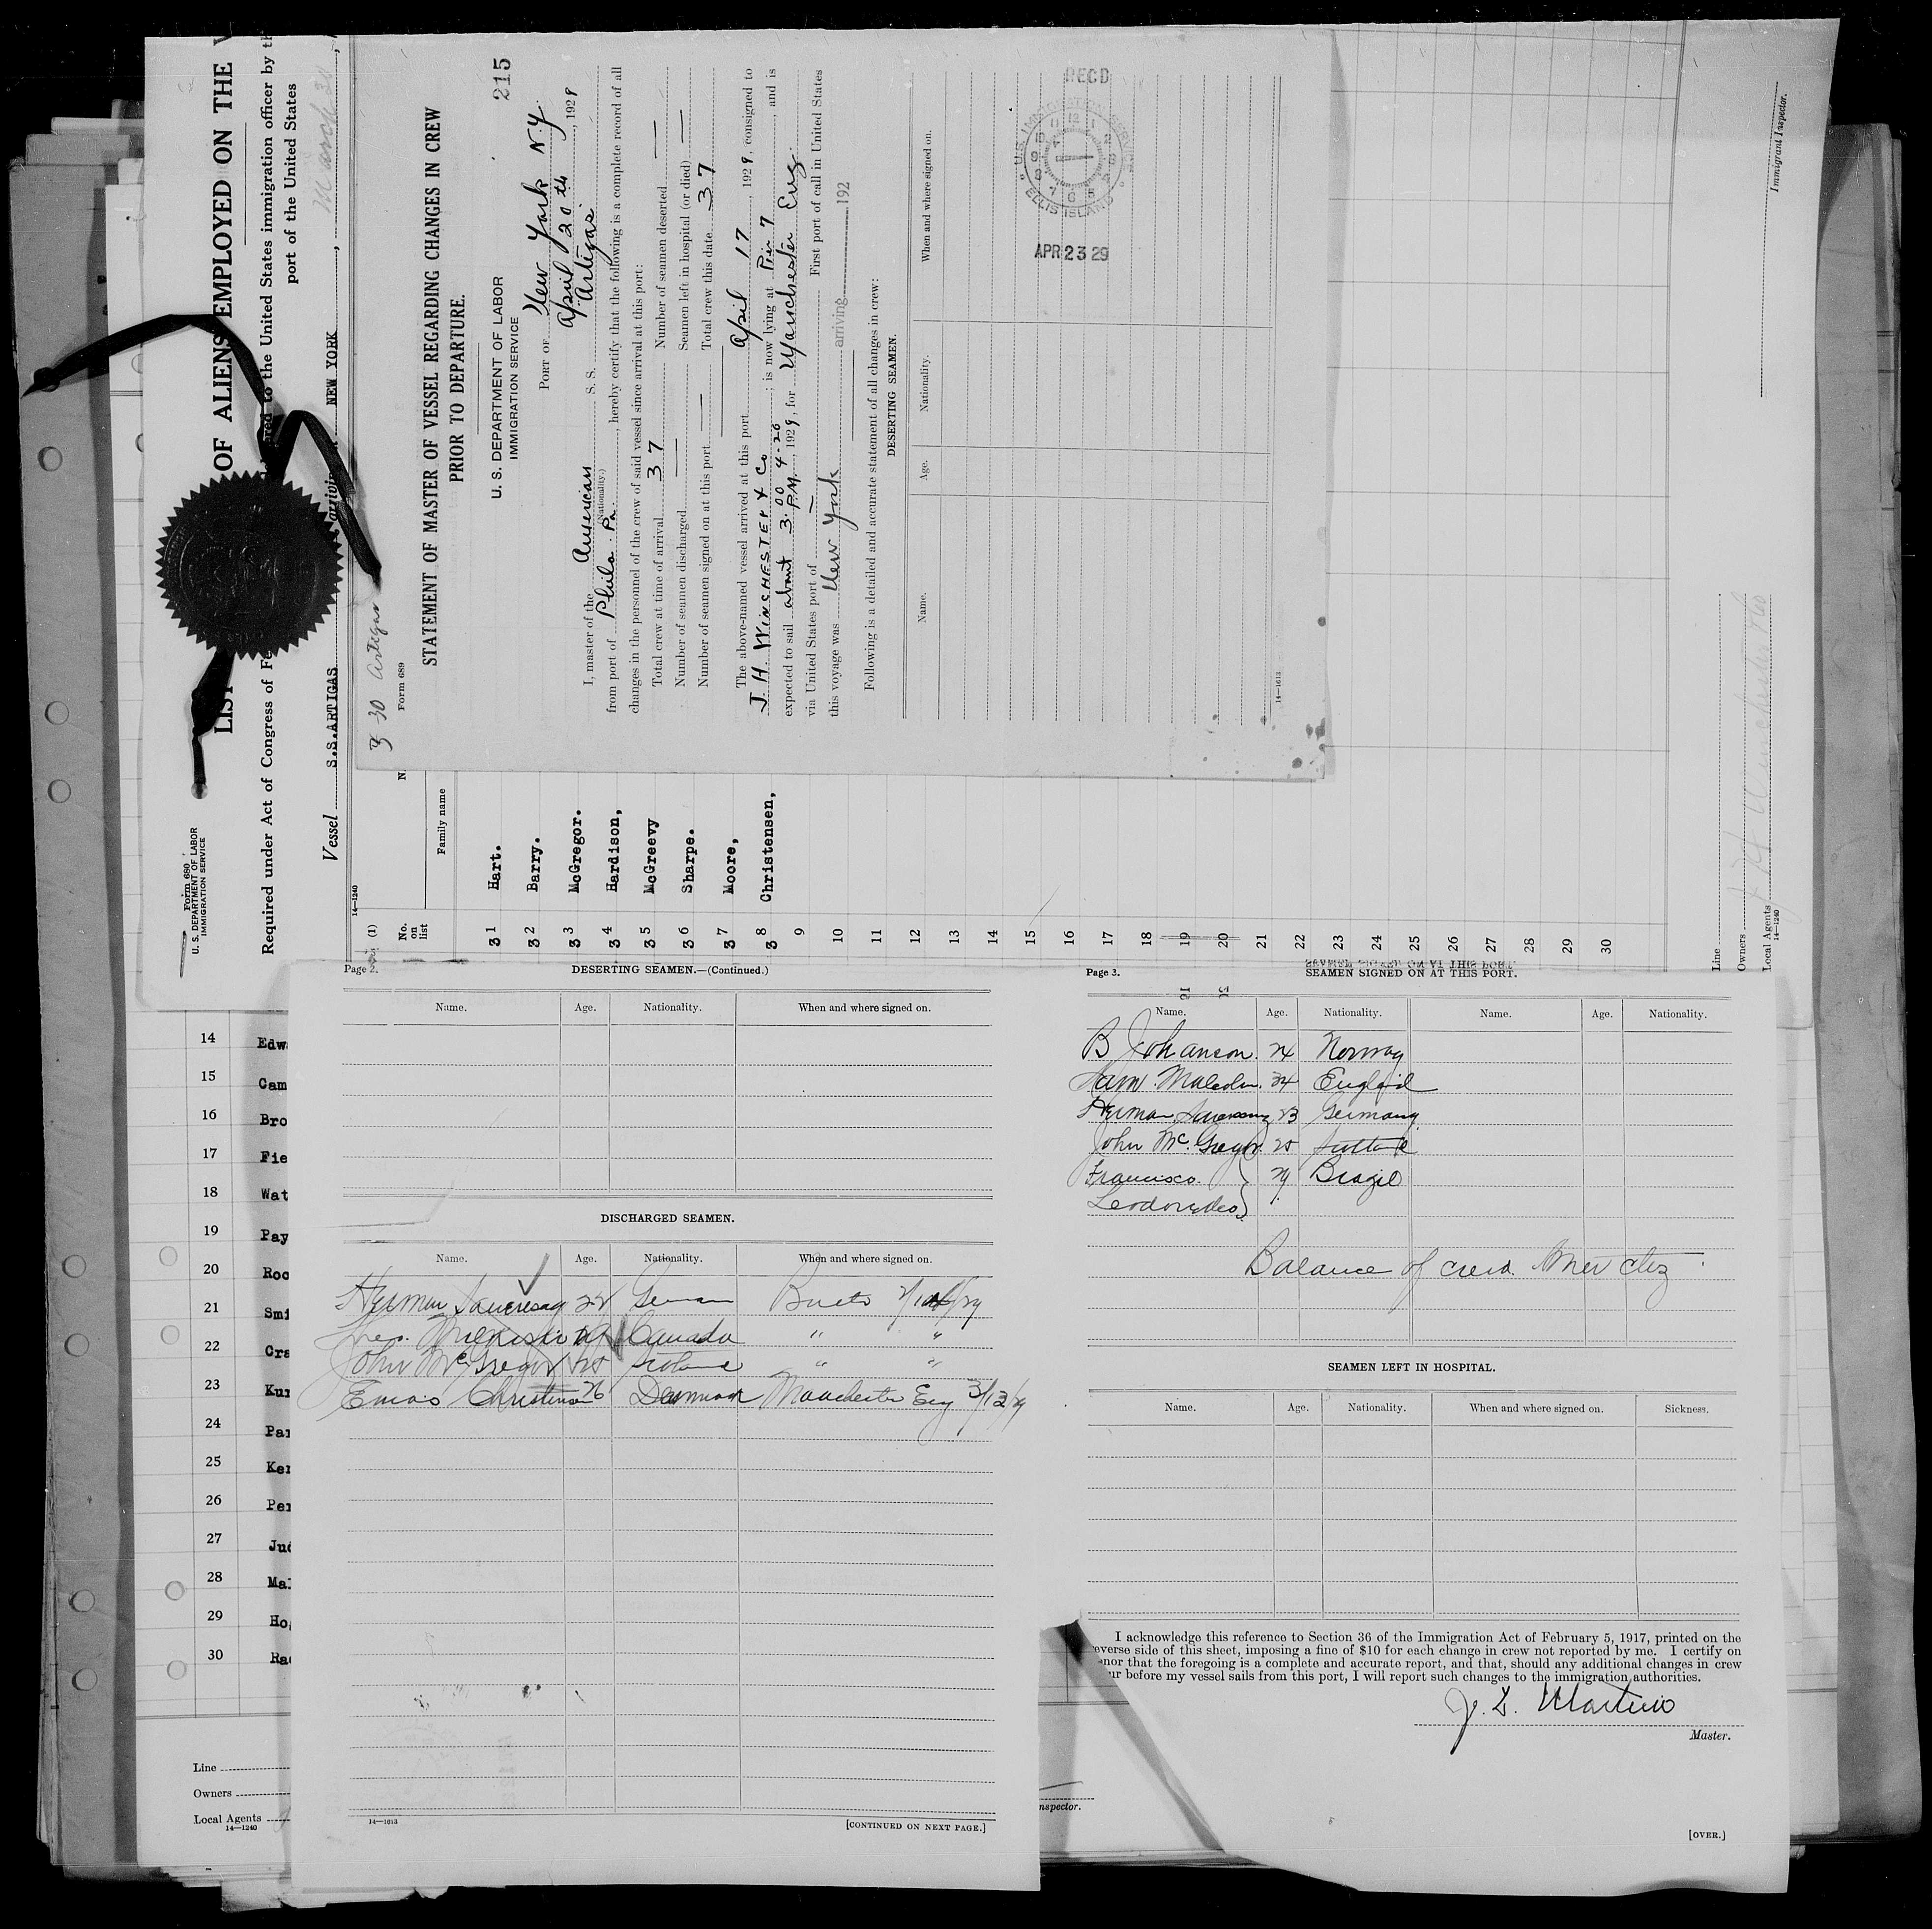 Form 680
U. S. DEPARTMENT OF LABOR
IMMIGRATION SERVICE
OF ALIENS EMPLOYED ON THE
Required under Act of Congress of
to the United States immigration officer by
port of the United States
Vessel S.S.ARTIGAS
NEW YORK
March 30
14—1240
(1)
No. on list
Family name
31 Hart.
32 Barry.
33 McGregor.
34 Hardison,
35 McGreevy
36 Sharpe.
37 Moore,
38 Christensen,
9
10
11
12
13
14
15
16
17
18
19
20
21
22
23
24
25
26
27
28
29
30
Line
Owners
Local Agents
14—1240
Immigrant Inspector.
3-30 Artigas
Form 689
215
STATEMENT OF MASTER OF VESSEL REGARDING CHANGES IN CREW
PRIOR TO DEPARTURE.
U. S. DEPARTMENT OF LABOR
IMMIGRATION SERVICE
PORT OF New York N.Y.
April 20th, 1929
I, master of the American S. S. Artigas
(Nationality.)
from port of Phila. Pa., hereby certify that the following is a complete record of all
changes in the personnel of the crew of said vessel since arrival at this port:
Total crew at time of arrival 37 Number of seamen deserted —
Number of seamen discharged — Seamen left in hospital (or died) —
Number of seamen signed on at this port — Total crew this date 37
The above-named vessel arrived at this port April 17, 1929, consigned to
J. H. WINCHESTER & Co; is now lying at Pier 7, and is
expected to sail about 3:00 P.M. 4-20 1929, for Manchester Eng.
via United States port of — First port of call in United States
this voyage was New York arriving 192
Following is a detailed and accurate statement of all changes in crew:
DESERTING SEAMEN.
Name. Age. Nationality. When and where signed on.
14—1613
RECD
U.S. IMMIGRATION SERVICE
ELLIS ISLAND
APR 23 29
14 Edw
15 Cam
16 Bro
17 Fie
18 Wat
19 Pay
20 Roc
21 Smi
22 Cra
23 Kur
24 Par
25 Ker
26 Per
27 Jud
28 Mal
29 Ho
30 Ra
Line
Owners
Local Agents
14—1240
Page 2.
DESERTING SEAMEN.—(Continued.)
Name. Age. Nationality. When and where signed on.
DISCHARGED SEAMEN.
Name. Age. Nationality. When and where signed on.
Herman 22 German
29 Canada " "
John McGregor 25 " "
Christensen 26 Denmark Manchester Eng 3/13/29
14—1613
[CONTINUED ON NEXT PAGE.]
Page 3.
SEAMEN SIGNED ON AT THIS PORT.
Name. Age. Nationality. Name. Age. Nationality.
B Johanson. 24 Norway
Sam. Malcolm. 34 England
Herman 23 Germany
John McGregor. 25
Francisco Brazil
Balance of crew
SEAMEN LEFT IN HOSPITAL.
Name. Age. Nationality. When and where signed on. Sickness.
I acknowledge this reference to Section 36 of the Immigration Act of February 5, 1917, printed on the
everse side of this sheet, imposing a fine of $10 for each change in crew not reported by me. I certify on
onor that the foregoing is a complete and accurate report, and that, should any additional changes in crew
ur before my vessel sails from this port, I will report such changes to the immigration authorities.
Master.
nspector.
[OVER.]